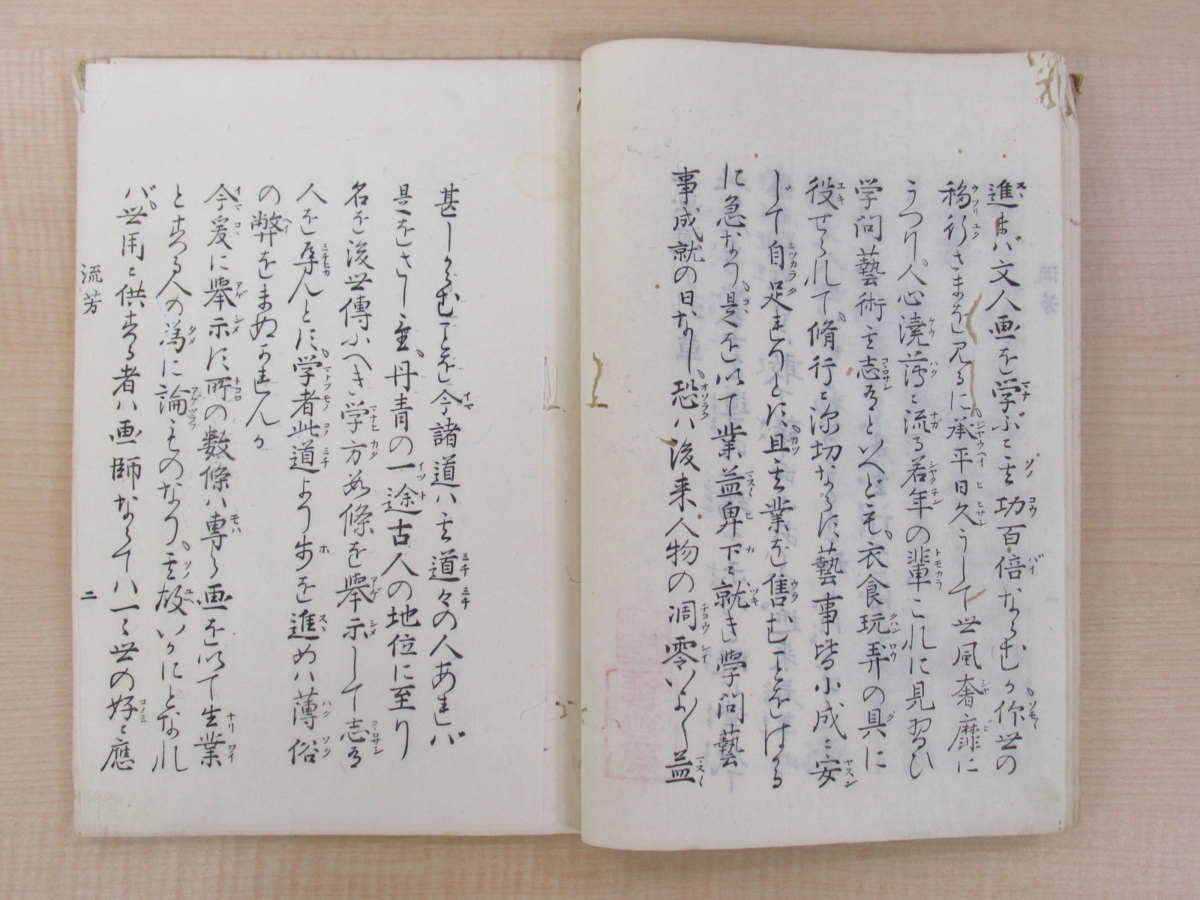 進まバ文人画を学ぶに其功百倍ならむか你世の
移行さまを見るに承平日久うして世風奢靡に
うつり人心澆薄に流る若年の輩これに見習ひ
学問藝術を志るといへども衣食玩弄の具に
役せられて脩行に深切ならず藝事皆小成に安
じて自足まりとす且其業を售むことをはかる
に急なり是を以て業益卑下に就き學問藝
事成就の日なし恐ハ後来人物の凋零いふし益
甚しからむことを今諸道ハ其道々の人あまバ
是をさし至丹青の一途古人の地位に至り
名を後世傳ふへき学方数條を擧示して志る
人を導んとす学者此道より歩を進めハ薄俗
の弊をまぬかまんか
今爰に擧示す所の数條ハ專ら画を以て生業
とする人の為に論ものなり其故いかにとなれ
バ世用に供する者ハ画師ならてハ一々世の好に應
流芳
二